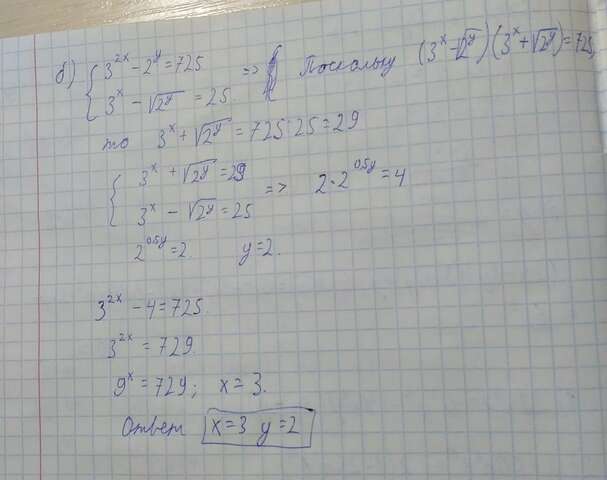 б) { 3^{2x} - 2^y = 725
3^x - √2^y = 25 => Поскольку (3^x - √2^y)(3^x + √2^y) = 725,
то 3^x + √2^y = 725:25 = 29
{ 3^x + √2^y = 29
3^x - √2^y = 25 => 2·2^{0.5y} = 4
2^{0.5y} = 2 y = 2.
3^{2x} - 4 = 725.
3^{2x} = 729
9^x = 729; x = 3.
Ответ x=3 y=2